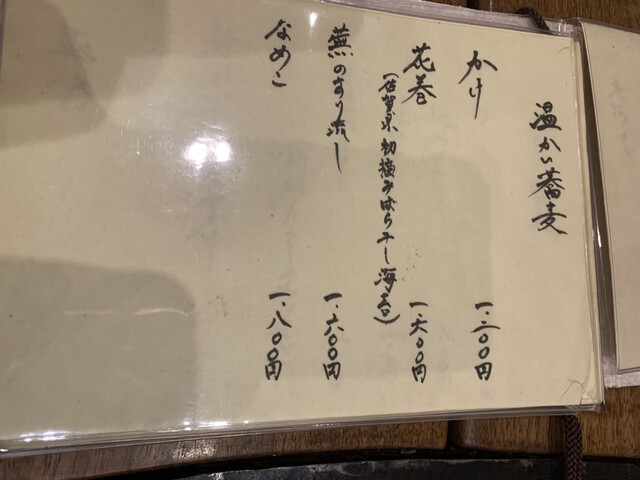 温かい蕎麦
かけ 一、二〇〇円
花巻 一、六〇〇円
(佐賀県 初摘みばら干し海苔)
蕪のすり流し 一、六〇〇円
なめこ 一、八〇〇円